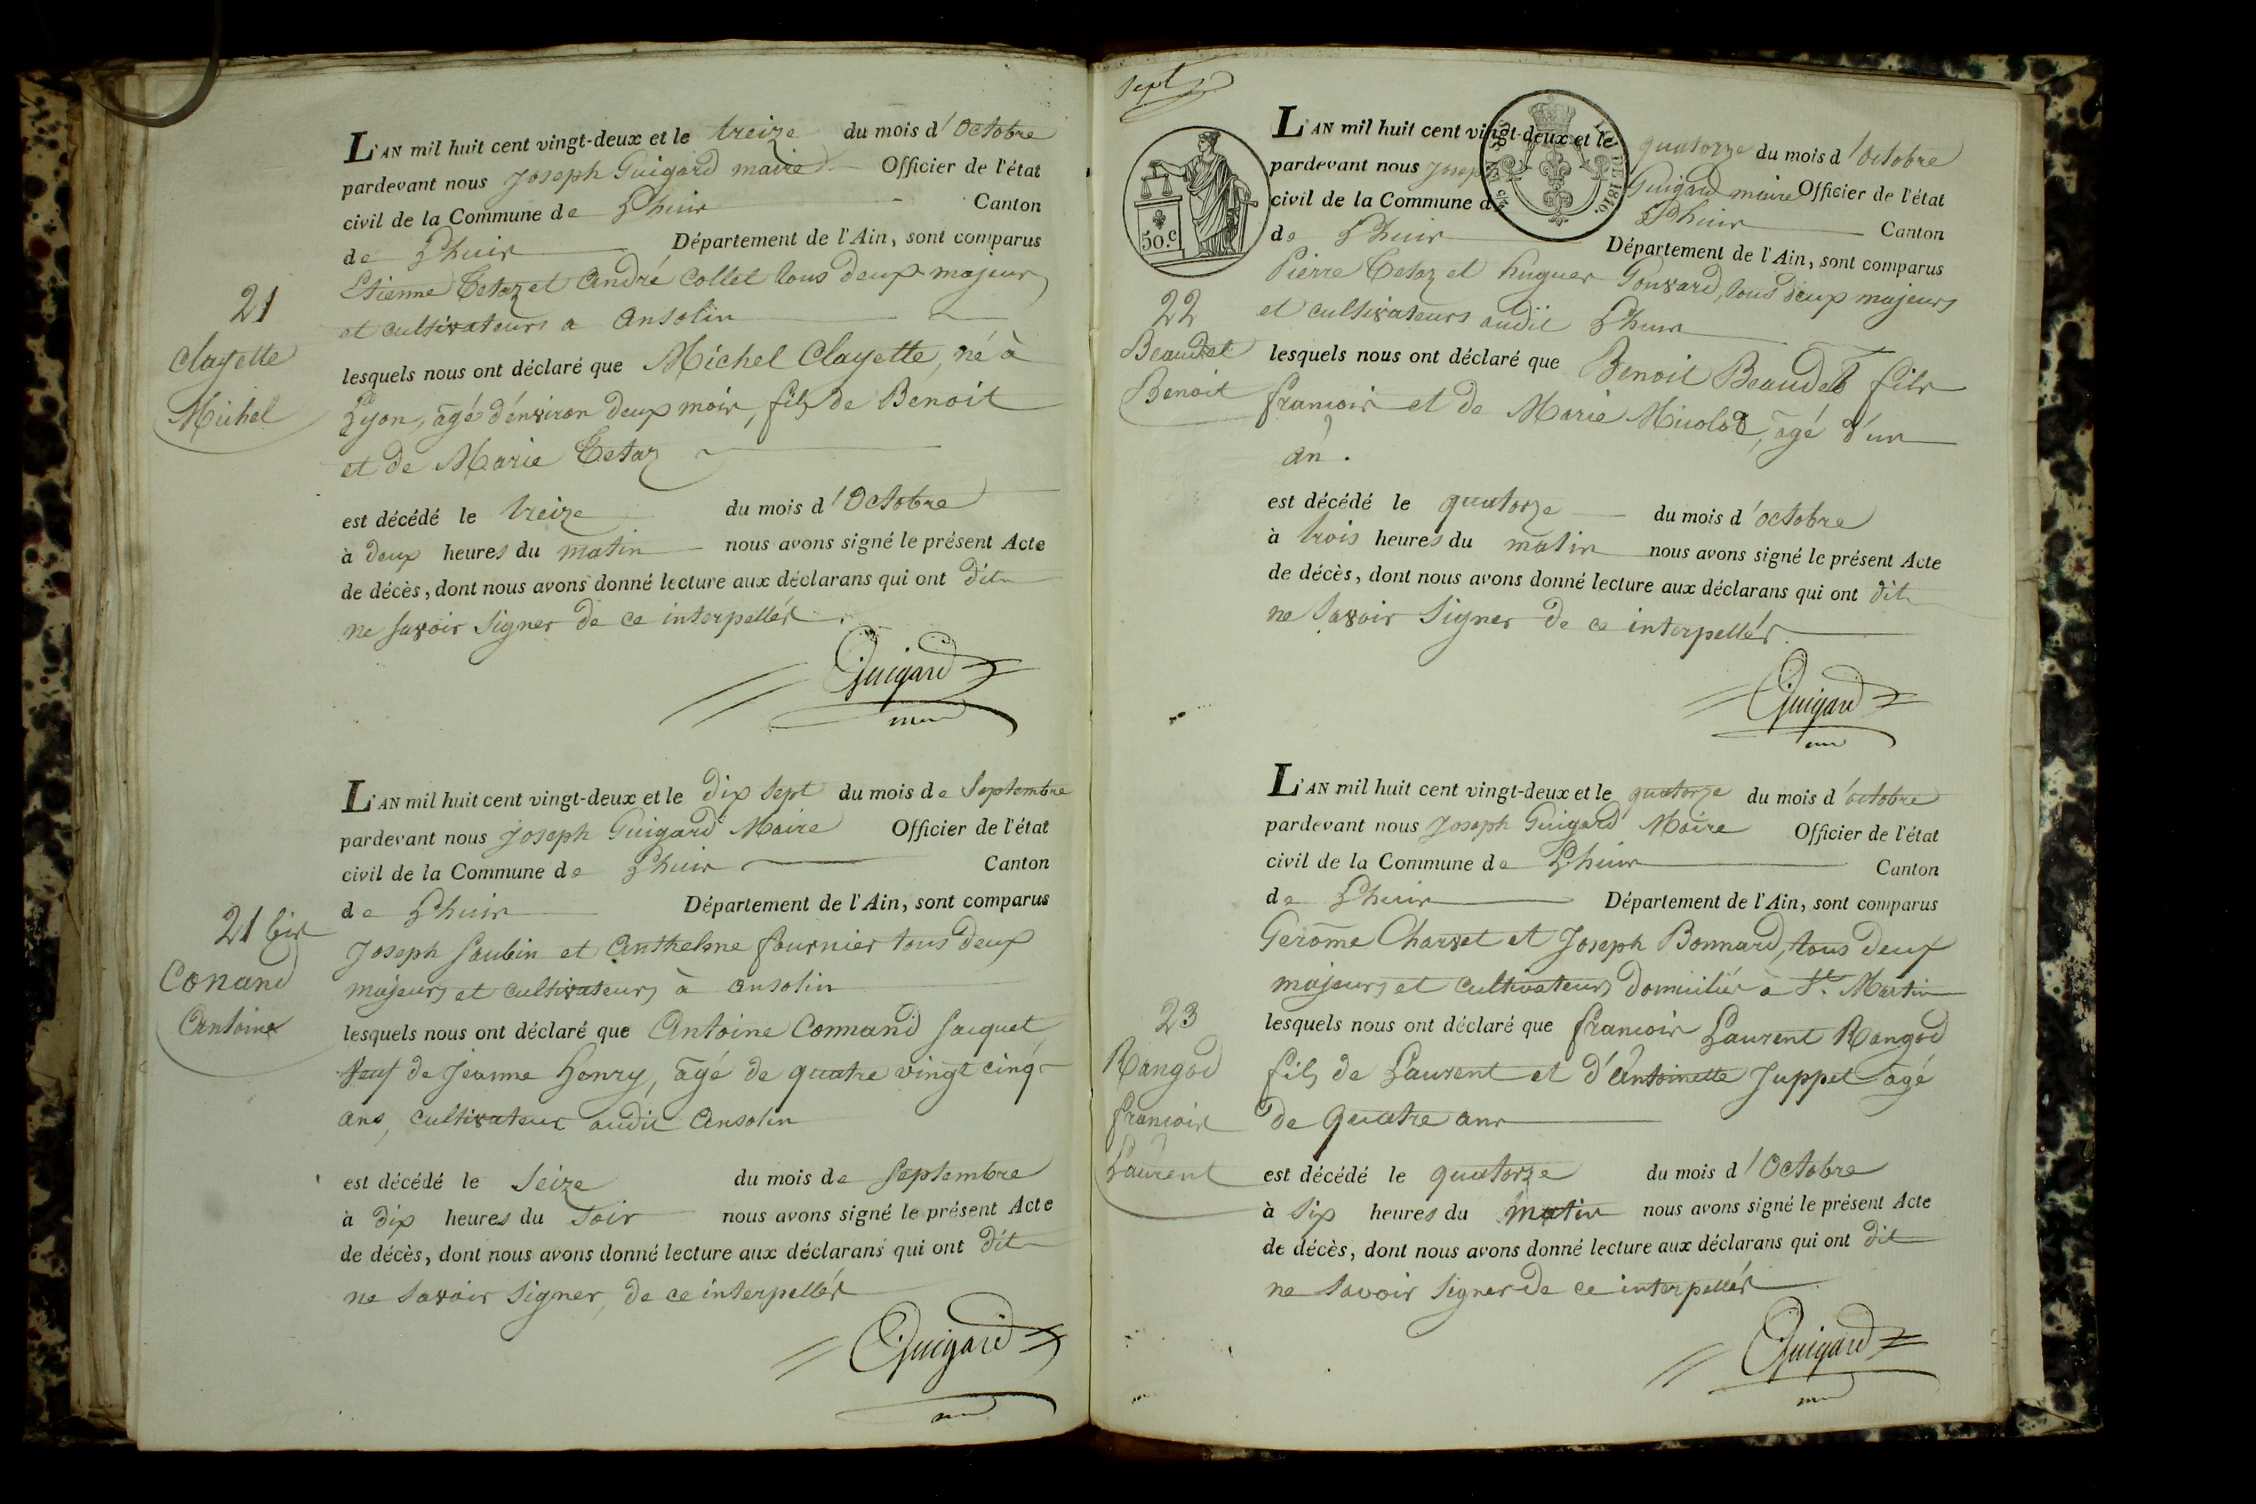 21
Clayette
Michel
L'AN mil huit cent vingt-deux et le treize du mois d'Octobre
pardevant nous Joseph Guigard maire Officier de l'état
civil de la Commune de Lhuis Canton
de Lhuis Département de l'Ain, sont comparus
Etienne Tetaz et André Collet tous deux majeurs
et cultivateurs a Ansolin
lesquels nous ont déclaré que Michel Clayette, né à
Lyon, âgé d'environ deux mois, fils de Benoit
et de Marie Tetaz
est décédé le treize du mois d'Octobre
à deux heures du matin nous avons signé le présent Acte
de décès, dont nous avons donné lecture aux déclarans qui ont dit
ne savoir signer de ce interpellés
Guigard
21 bis
Conand
Antoine
L'AN mil huit cent vingt-deux et le dix sept du mois de Septembre
pardevant nous Joseph Guigard Maire Officier de l'état
civil de la Commune de Lhuis Canton
de Lhuis Département de l'Ain, sont comparus
Joseph Saubin et Anthelme fournier tous deux
majeurs et cultivateurs à ansolin
lesquels nous ont déclaré que Antoine Connand Jacquet,
veuf de Jeanne Henry, âgé de quatre vingt cinq
ans, cultivateur audit Ansolin
est décédé le Seize du mois de Septembre
à dix heures du Soir nous avons signé le présent Acte
de décès, dont nous avons donné lecture aux déclarans qui ont dit
ne savoir signer, de ce interpellés
Guigard
Sept
50.c
22
Beaudet
Benoit
L'AN mil huit cent vingt-deux et le quatorze du mois d'Octobre
pardevant nous Joseph Guigard maire Officier de l'état
civil de la Commune de Lhuis Canton
de Lhuis Département de l'Ain, sont comparus
Pierre Tetaz et hugues Gouvard, tous deux majeurs
et cultivateurs audit Lhuis
lesquels nous ont déclaré que Benoit Beaudet fils
francois et de Marie Micolod, âgé d'un
an.
est décédé le quatorze du mois d'octobre
à trois heures du matin nous avons signé le présent Acte
de décès, dont nous avons donné lecture aux déclarans qui ont dit
ne Savoir Signer de ce interpellés
Guigard
23
Rangod
francois
Laurent
L'AN mil huit cent vingt-deux et le quatorze du mois d'octobre
pardevant nous Joseph Guigard Maire Officier de l'état
civil de la Commune de Lhuis Canton
de Lhuis Département de l'Ain, sont comparus
Gerôme Charvet et Joseph Bonnard, tous deux
majeurs et cultivateurs domiciliés à St. Martin
lesquels nous ont déclaré que francois Laurent Rangod
fils de Laurent et d'Antoinette Juppet âgé
de quatre ans
est décédé le quatorze du mois d'Octobre
à Six heures du matin nous avons signé le présent Acte
de décès, dont nous avons donné lecture aux déclarans qui ont dit
ne Savoir Signer de ce interpellés
Guigard